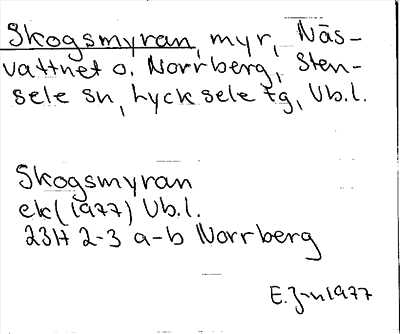 Skogsmyran, myr, Näs-
vattnet o. Norrberg, Sten-
sele sn, Lycksele tg, Vb.l.
Skogsmyran
ek (1977) Vb.l.
23H 2-3 a-b Norrberg
E. J-n 1977